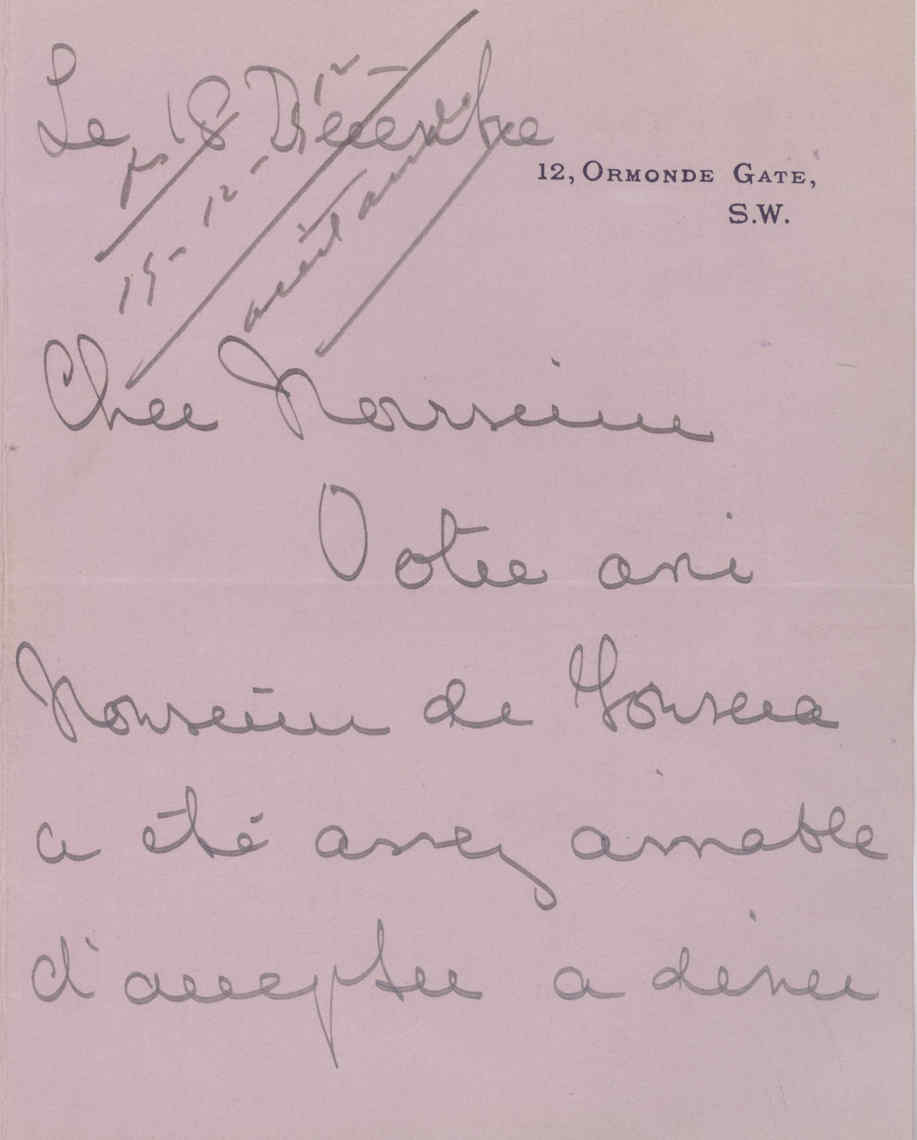 Le 18 Décembre
12, ORMONDE GATE,
S.W.
19-12-12-
Cher Monsieur
Votre ami
Monsieur de Fonseca
a été assez aimable
d'accepter a diner